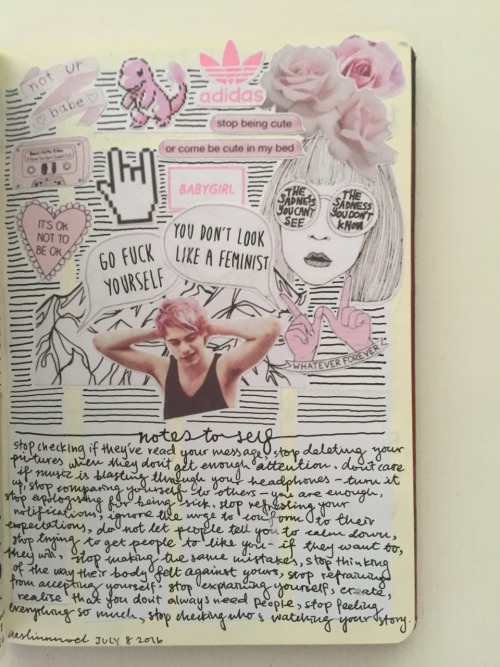 not ur
♡ babe ♡
adidas
stop being cute
or come be cute in my bed
BABYGIRL
IT'S OK
NOT TO
BE OK
THE
SADNESS
YOU CAN'T
SEE
THE
SADNESS
YOU DON'T
KNOW
GO FUCK
YOURSELF
YOU DON'T LOOK
LIKE A FEMINIST
WHATEVER FOREVER
notes to self
stop checking if they've read your message, stop deleting your
pictures when they don't get enough attention, don't care
if music is blasting through your headphones - turn it
up, stop comparing yourself to others - you are enough,
stop apologising for being sick, stop refreshing your
notifications, ignore the urge to conform to their
expectations, do not let people tell you to calm down,
stop trying to get people to like you - if they want to,
they will, stop making the same mistakes, stop thinking
of the way their body felt against yours, stop refraining
from accepting yourself, stop explaining yourself, create,
realise that you don't always need people, stop feeling
everything so much, stop checking who's watching your story.
JULY 8 2016